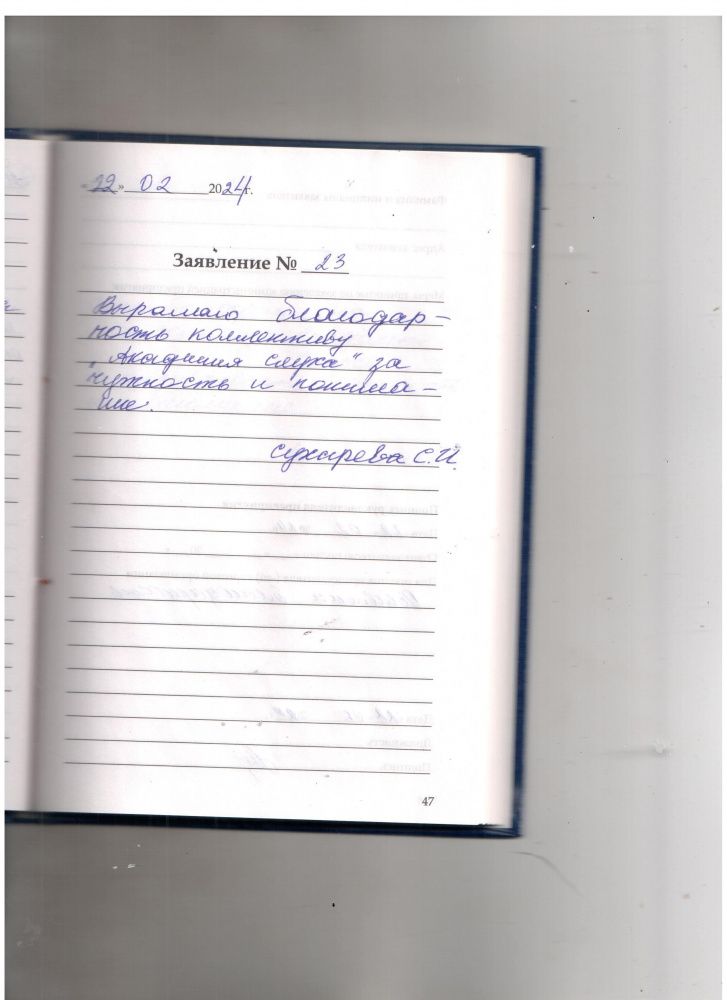 «22» 02 2024г.
Заявление № 23
Выражаю благодар-
ность коллективу
"Академия слуха" за
чуткость и понима-
ние.
Сухарева С.И.
47